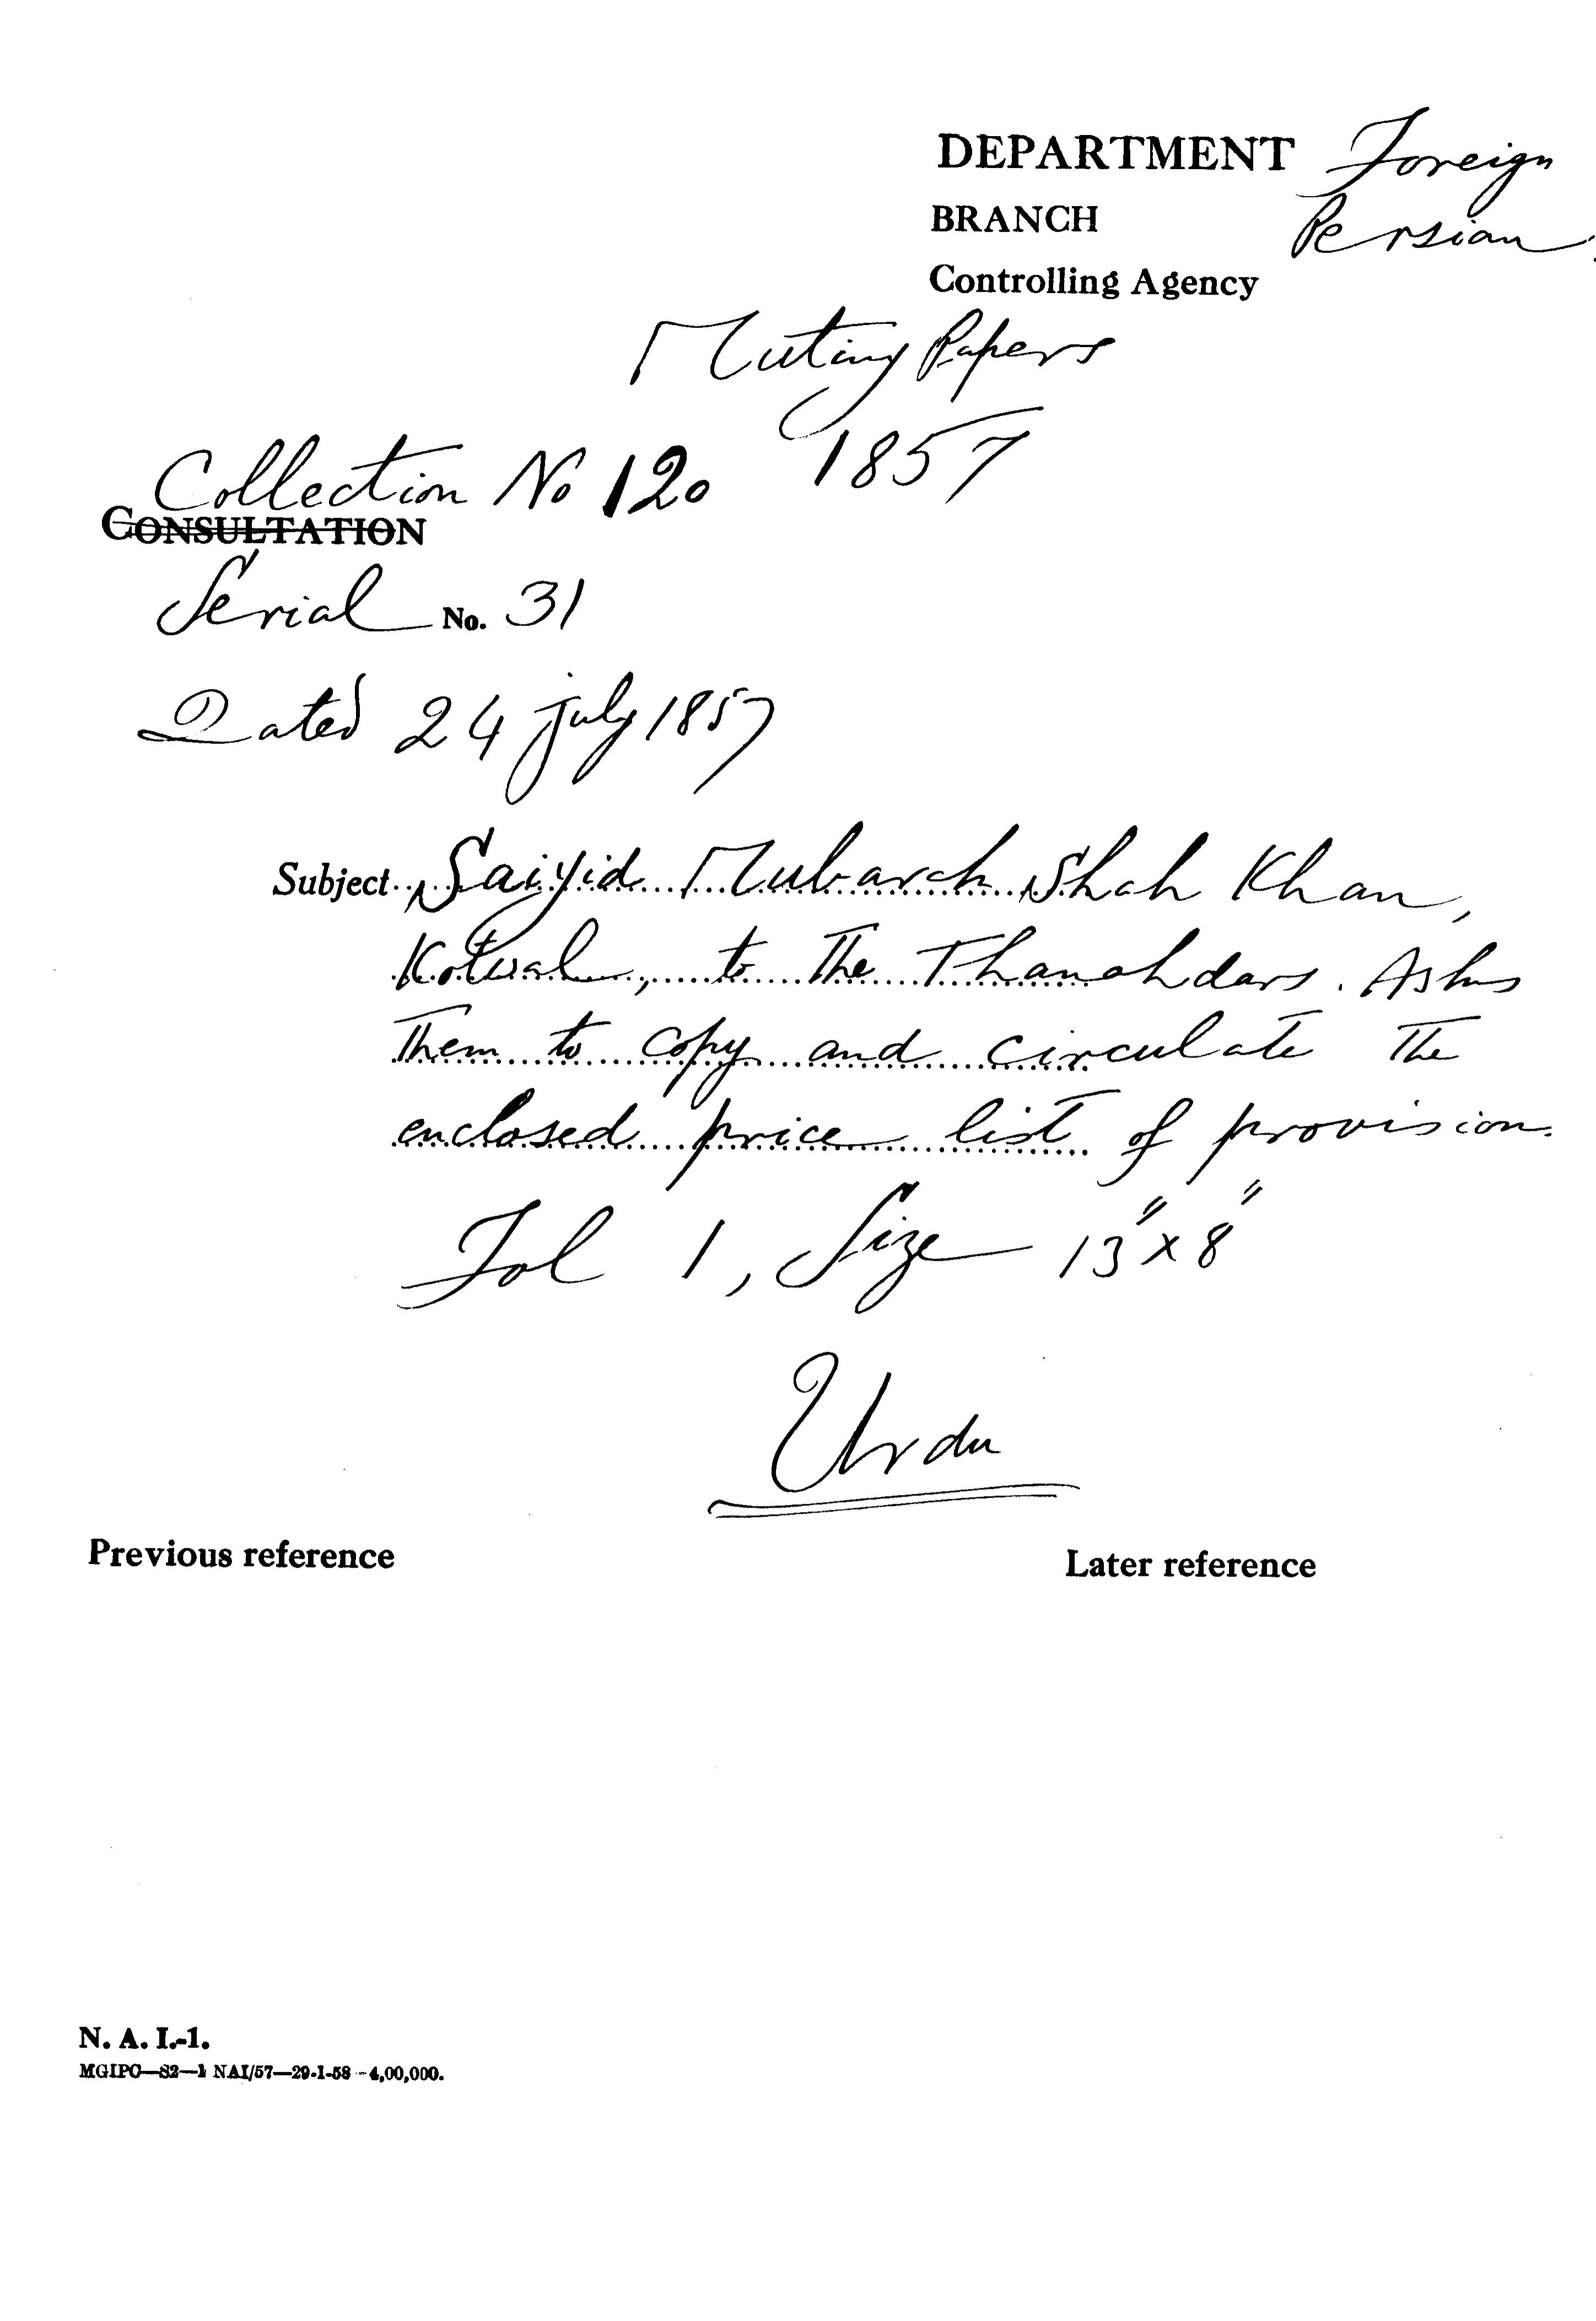 DEPARTMENT Foreign
BRANCH Persian
Controlling Agency
Mutiny Papers
1857
Collection No 120
CONSULTATION
Serial No. 31
Dated 24 July 1857
Subject Saiyid Mubarak Shah Khan,
Kotwal, to the Thanahdars. Asks
them to copy and circulate the
enclosed price list of provision.
Fol 1, Size 13" x 8"
Urdu
Previous reference
Later reference
N. A. I.-1.
MGIPC—S2—1 NAI/57—29-1-58—4,00,000.